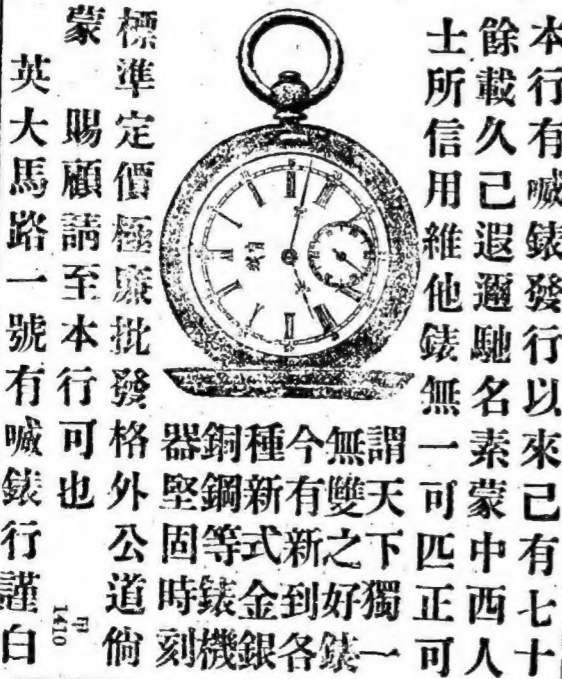 本行有喴錶發行以來己有七十
餘載久己遐邇馳名素蒙中西人
士所信用維他錶無一可匹正可
謂天下獨一
無雙之好錶
今有新到各
種新式金銀
銅鋼等錶機
器堅固時刻
標準定價極廉批發格外公道倘
蒙 賜顧請至本行可也
1410
英大馬路一號有喴錶行謹白